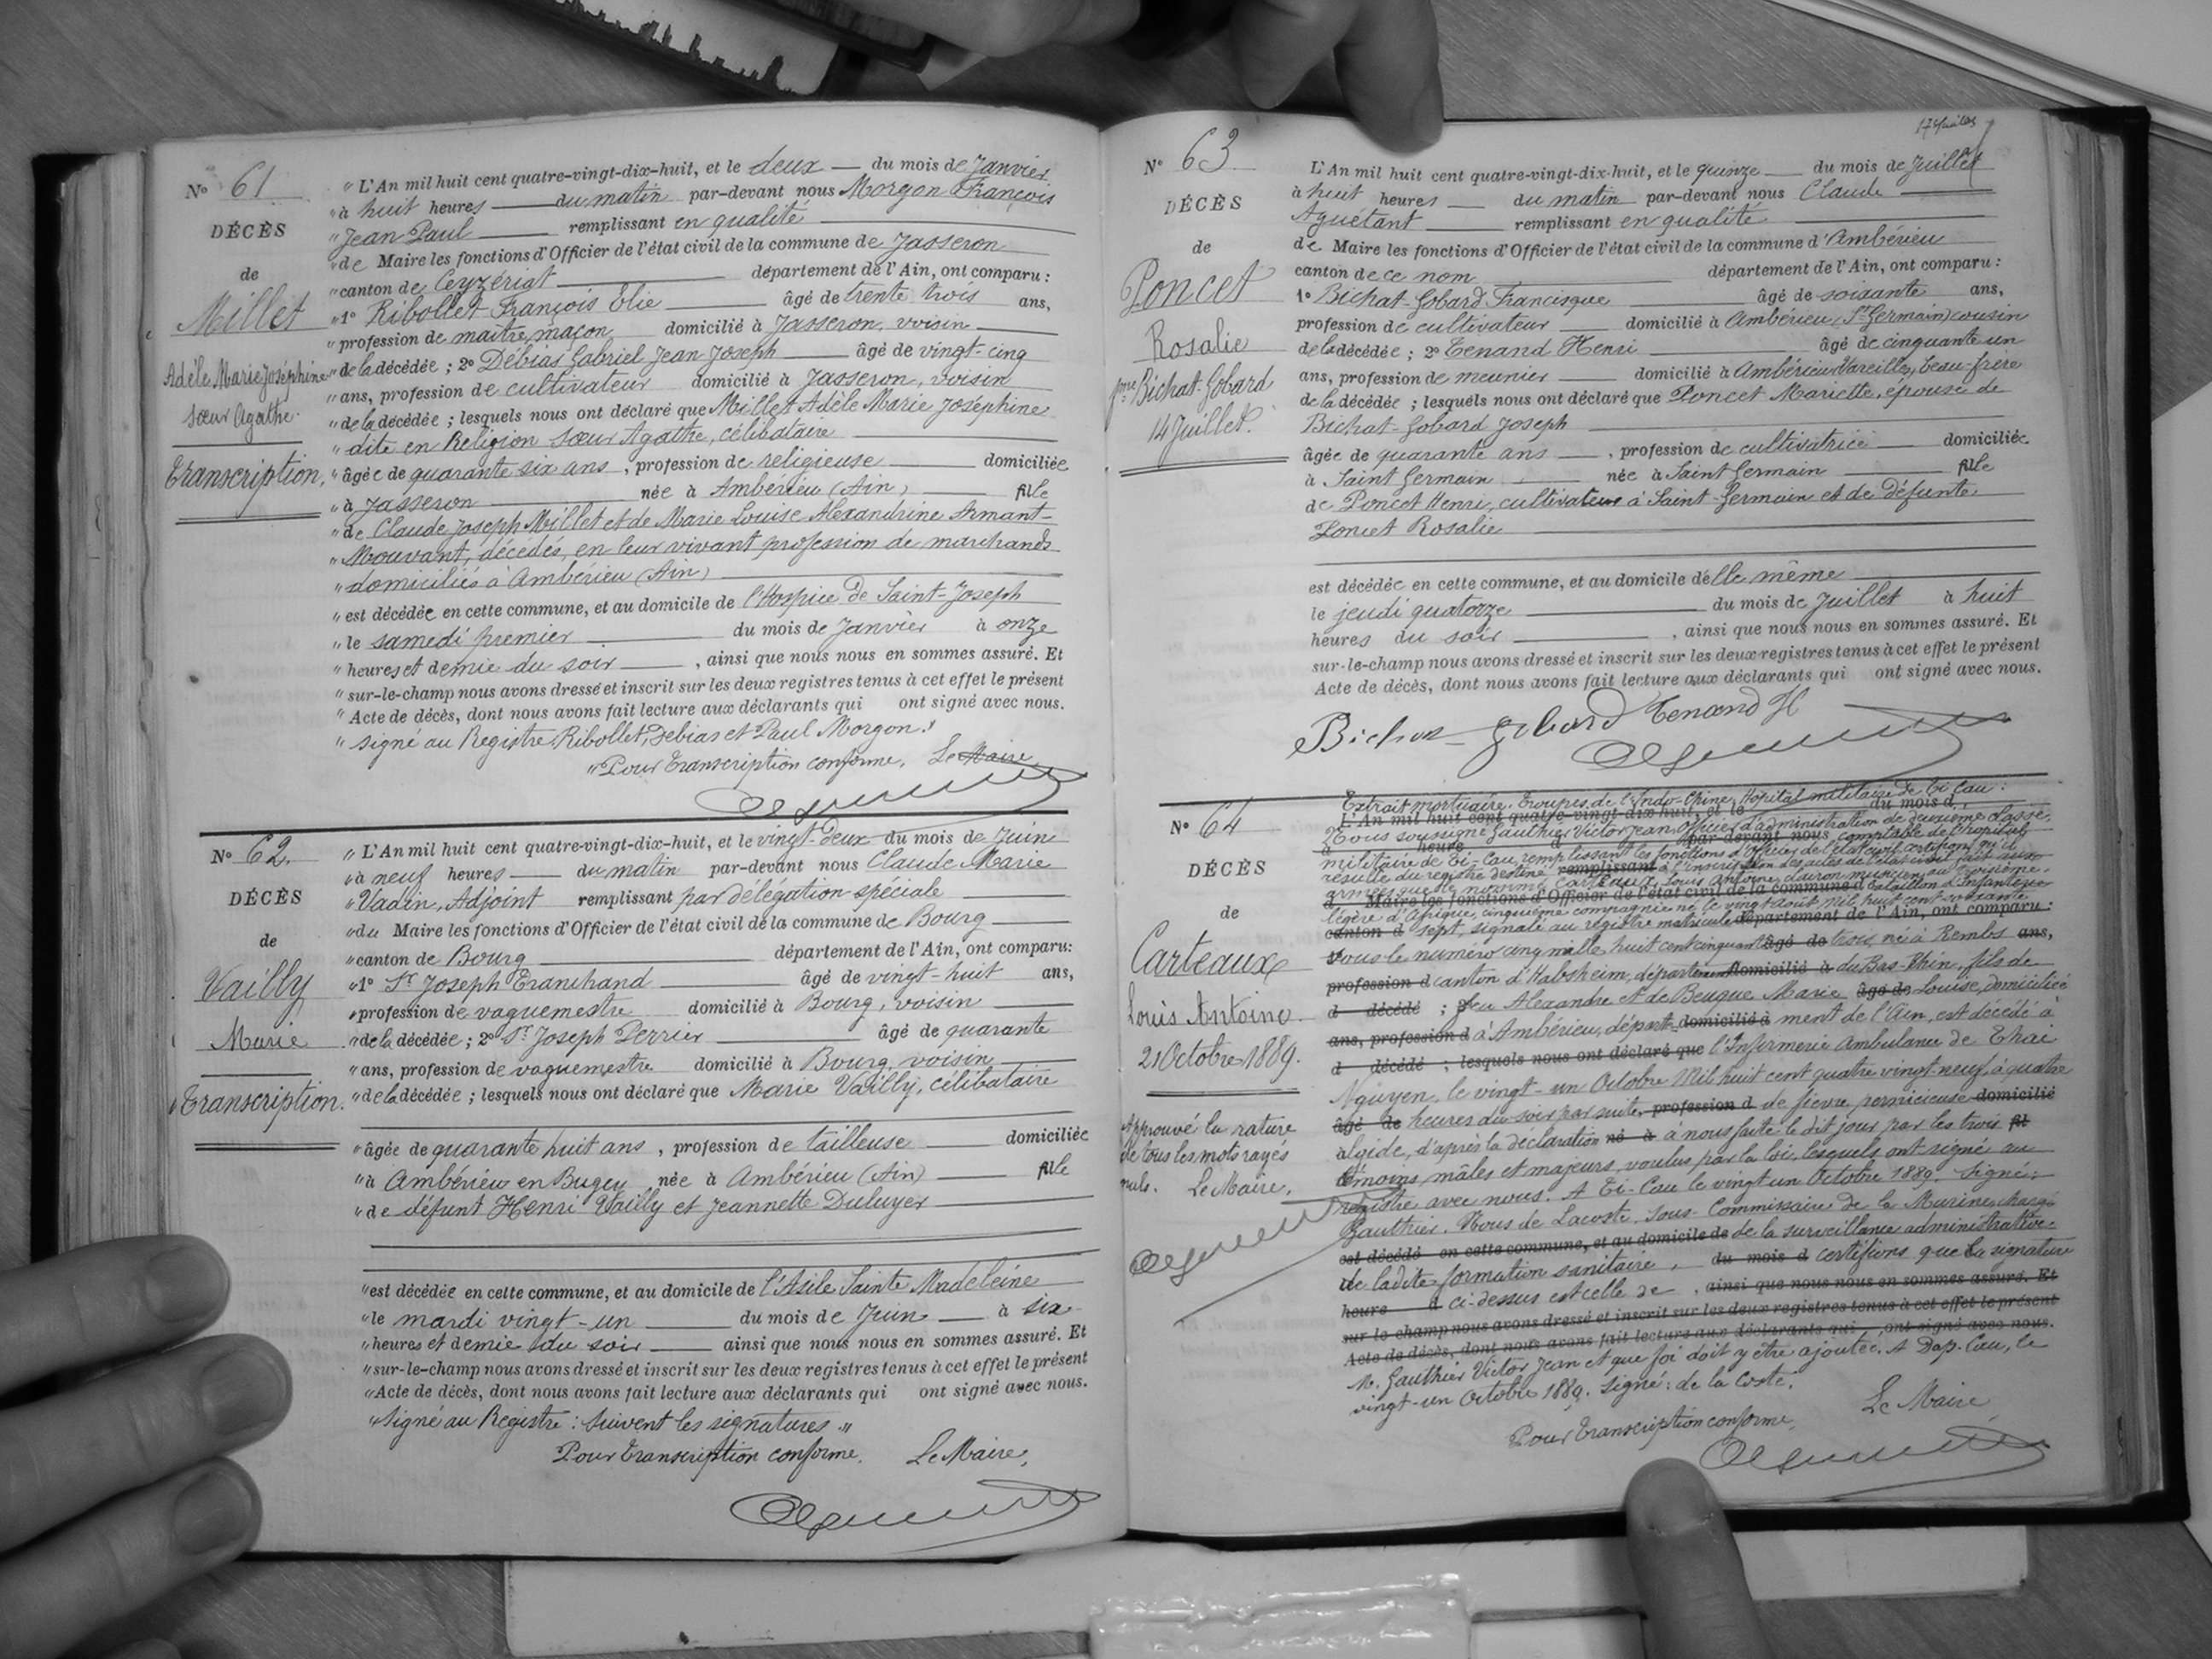 N° 61
DÉCÈS
de
Millet
Adèle Marie Joséphine
Sœur Agathe.
Transcription,
" L'An mil huit cent quatre-vingt-dix-huit, et le deux du mois de Janvier
" à huit heures du matin par-devant nous Morgon François
" Jean Paul remplissant en qualité
" de Maire les fonctions d'Officier de l'état civil de la commune de Jasseron
" canton de Ceyzériat département de l'Ain, ont comparu :
" 1° Ribollet François Elie âgé de trente trois ans,
" profession de maître maçon domicilié à Jasseron, voisin
" de la décédée ; 2° Débias Gabriel Jean Joseph âgé de vingt-cinq
" ans, profession de cultivateur domicilié à Jasseron, voisin
" de la décédée ; lesquels nous ont déclaré que Millet Adèle Marie Joséphine
" dite en Religion Sœur Agathe, célibataire
" âgée de quarante six ans , profession de religieuse domiciliée
" à Jasseron née à Ambérieu (Ain) fille
" de Claude Joseph Millet et de Marie Louise Alexandrine Armant-
" Mouvant, décédés, en leur vivant profession de marchands
" domiciliés à Ambérieu (Ain)
" est décédée en cette commune, et au domicile de l'Hospice de Saint-Joseph
" le samedi premier du mois de Janvier à onze
" heures et demie du soir , ainsi que nous nous en sommes assuré. Et
" sur-le-champ nous avons dressé et inscrit sur les deux registres tenus à cet effet le présent
" Acte de décès, dont nous avons fait lecture aux déclarants qui ont signé avec nous.
" signé au Registre, Ribollet, Debias et Paul Morgon."
" Pour Transcription conforme, Le Maire,
N° 62.
DÉCÈS
de
Vailly
Marie
Transcription.
" L'An mil huit cent quatre-vingt-dix-huit, et le vingt-deux du mois de Juin
" à neuf heures du matin par-devant nous Claude Marie
" Vadin, Adjoint remplissant par délégation spéciale
" du Maire les fonctions d'Officier de l'état civil de la commune de Bourg
" canton de Bourg département de l'Ain, ont comparu:
" 1° Sr Joseph Tranchand âgé de vingt-huit ans,
" profession de vaguemestre domicilié à Bourg, voisin
" de la décédée ; 2° Sr Joseph Perrier âgé de quarante
" ans, profession de vaguemestre domicilié à Bourg, voisin
" de la décédée ; lesquels nous ont déclaré que Marie Vailly, célibataire
" âgée de quarante huit ans , profession de tailleuse domiciliée
" à Ambérieu en Bugey née à Ambérieu (Ain) fille
" de défunt Henri Vailly et Jeannette Duluyer
" est décédée en cette commune, et au domicile de l'Asile Sainte Madeleine
" le mardi vingt-un du mois de Juin à six
" heures et demie du soir ainsi que nous nous en sommes assuré. Et
" sur-le-champ nous avons dressé et inscrit sur les deux registres tenus à cet effet le présent
" Acte de décès, dont nous avons fait lecture aux déclarants qui ont signé avec nous.
" Signé au Registre : Suivent les signatures "
Pour Transcription conforme, Le Maire,
N° 63
DÉCÈS
de
Poncet
Rosalie
fme Bichat-Gobard
14 Juillet.
L'An mil huit cent quatre-vingt-dix-huit, et le quinze du mois de Juillet
à huit heures du matin par-devant nous Claude
Aguétant remplissant en qualité
de Maire les fonctions d'Officier de l'état civil de la commune d'Ambérieu
canton de ce nom département de l'Ain, ont comparu :
1° Bichat-Gobard Francisque âgé de soixante ans,
profession de cultivateur domicilié à Ambérieu (St Germain) cousin
de la décédée ; 2° Tenand Henri âgé de cinquante un
ans, profession de meunier domicilié à Ambérieu Vareilles, beau-frère
de la décédée ; lesquels nous ont déclaré que Poncet Mariette, épouse de
Bichat-Gobard Joseph
âgée de quarante ans , profession de cultivatrice domiciliée
à Saint Germain née à Saint Germain fille
de Poncet Henri, cultivateur à Saint-Germain et de défunte
Poncet Rosalie
est décédée en cette commune, et au domicile d'elle même
le jeudi quatorze du mois de Juillet à huit
heures du soir , ainsi que nous nous en sommes assuré. Et
sur-le-champ nous avons dressé et inscrit sur les deux registres tenus à cet effet le présent
Acte de décès, dont nous avons fait lecture aux déclarants qui ont signé avec nous.
Bichat-Gobard Tenand H
N° 64
DÉCÈS
de
Carteaux
Louis Antoine
21 Octobre 1889.
Approuvé la rature
de tous les mots rayés
nuls. Le Maire,
Extrait mortuaire. Troupes de l'Indo-Chine, Hôpital militaire de Ti Cau :
L'An mil huit cent quatre-vingt-dix-huit, et le du mois d
Nous soussigné Gauthier Victor Jean Officier d'administration de deuxième classe,
heure d par-devant nous comptable de l'hôpital
militaire de Ti-Cau, remplissant les fonctions d'Officier de l'état civil certifions qu'il
résulte du registre destiné remplissant à l'inscription des actes de l'état civil fait aux
armées que le nommé Carteaux, Louis Antoine, clairon musicien au troisième
d Maire les fonctions d'Officier de l'état civil de la commune d bataillon d'Infanterie
légère d'Afrique, cinquième compagnie né le vingt août mil huit cent soixante
canton d sept, signalé au registre matricule département de l'Ain, ont comparu :
sous le numéro cinq mille huit cent cinquante âgé de trois, né à Rembs ans,
profession d canton d'Habsheim, département domicilié à du Bas-Rhin, fils de
d décédé ; feu Alexandre et de Beuque Marie âgé de Louise, domiciliée
ans, profession d à Ambérieu, départe domicilié à ment de l'Ain, est décédé à
d décédé ; lesquels nous ont déclaré que l'Infirmerie Ambulance de Thai
Nguyen, le vingt-un Octobre Mil huit cent quatre vingt-neuf à quatre
âgé de heures du soir par suite profession d de fièvre pernicieuse domicilié
algide, d'après la déclaration né à à nous faite le dit jour par les trois fil
témoins, mâles et majeurs, voulus par la loi, lesquels ont signé au
registre avec nous. A Ti-Cau le vingt un Octobre 1889. Signé :
Gauthier. Nous de Lacoste, Sous-Commissaire de la Marine, chargé
est décédé en cette commune, et au domicile de de la surveillance administrative
de ladite formation sanitaire, du mois d certifions que la signature
heure d ci-dessus est celle de , ainsi que nous nous en sommes assuré. Et
sur-le-champ nous avons dressé et inscrit sur les deux registres tenus à cet effet le présent
Acte de décès, dont nous avons fait lecture aux déclarants qui ont signé avec nous.
M. Gauthier Victor Jean et que foi doit y être ajoutée. A Dap-Cau, le
vingt-un Octobre 1889. Signé : de la Coste.
Pour Transcription conforme, Le Maire